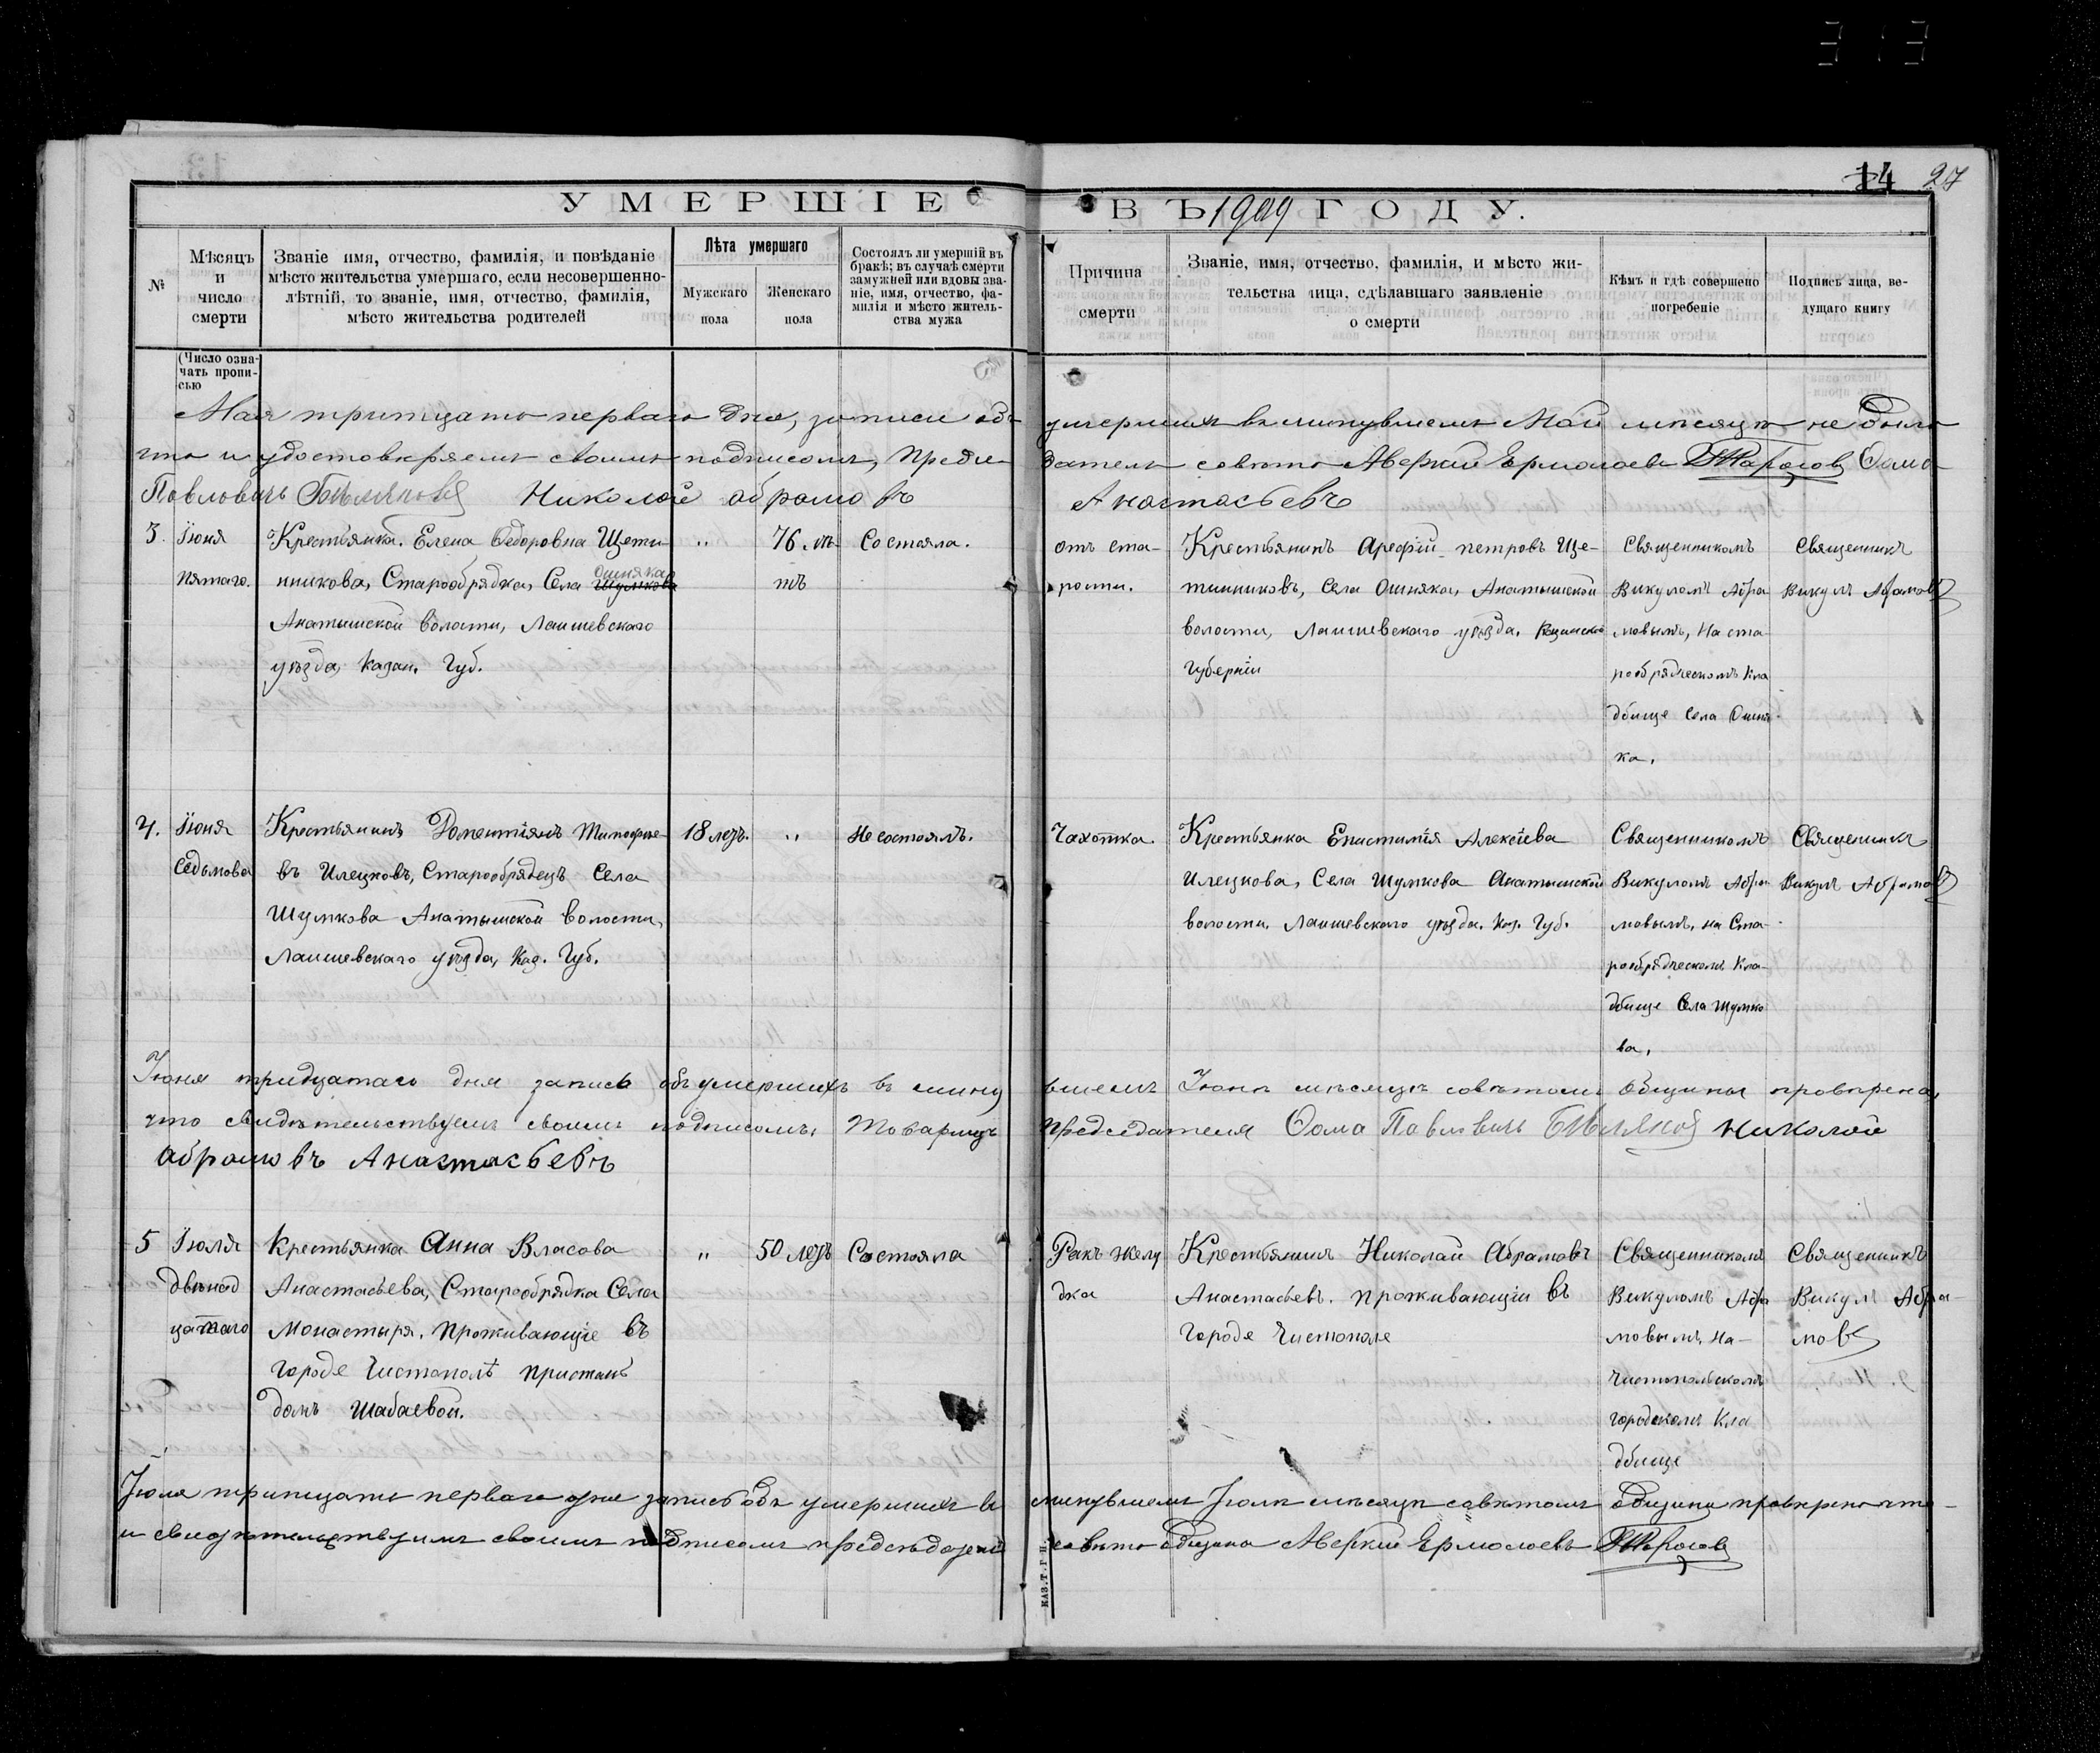 14 27
УМЕРШІЕ
ВЪ 1909 ГОДУ.
№
Мѣсяцъ
и
число
смерти
Званіе имя, отчество, фамилія, и повѣданіе
мѣсто жительства умершаго, если несовершенно-
лѣтній, то званіе, имя, отчество, фамилія,
мѣсто жительства родителей
Лѣта умершаго
Мужскаго
пола
Женскаго
пола
Состоялъ ли умершій въ
бракѣ; въ случаѣ смерти
замужней или вдовы зва-
ніе, имя, отчество, фа-
милія и мѣсто житель-
ства мужа
Причина
смерти
Званіе, имя, отчество, фамилія, и мѣсто жи-
тельства лица, сдѣлавшаго заявленіе
о смерти
Кѣмъ и гдѣ совершено
погребеніе
Подпись лица, ве-
дущаго книгу
(Число озна-
чать пропи-
сью
Мая тритцать перваго дня, записи объ умершихъ въ минувшемъ Май мѣсяцѣ не было
что и удостовѣряемъ своимъ подписомъ, Предсе датель совѣта Аверкий Ермолаевъ Тарасов Ѳома
Павловичъ Бѣляковъ Николай абрамовъ Анастасьевъ
3.
Іюня
пятаго.
Крестьянка. Елена Ѳедоровна Щети-
нникова, Старообрядка, Села Шумкова Ошняка
Анатышской волости, Лаишевскаго
уѣзда, Казан. Губ.
"
76 лѣ-
тъ
Состояла.
отъ ста-
рости.
Крестьянинъ Арефій петровъ Ще-
тинниковъ, Села Ошняка, Анатышской
волости, Лаишевскаго уѣзда. Казанской
Губерніи
Священникомъ
Викуломъ Абра
мовымъ, на ста-
рообрядческомъ Кла
дбище Села Ошня-
ка.
Священникъ
Викулъ Абрамовъ
4.
Іюня
Седьмова
Крестьянинъ Доментіянъ Тимофее-
въ Илецковъ, Старообрядецъ Села
Шумкова Анатышской волости,
Лаишевскаго уѣзда, Каз. Губ.
18 летъ.
"
Не состоялъ.
Чахотка.
Крестьянка Епистимія Алексіева
Илецкова, Села Шумкова Анатышской
волости, Лаишевскаго уѣзда. Каз. Губ.
Священникомъ
Викуломъ Абра
мовымъ, на Ста-
рообрядческомъ Кла-
дбище Села Шумко
ва.
Священникъ
Викулъ Абрамовъ
Іюня тридцатаго дня запись объ умершихъ въ мину вшемъ Іюнѣ мѣсяцѣ совѣтомъ общины провѣрена,
что свидѣтельствуемъ своимъ подписомъ, Товарищъ председателя Ѳома Павловичъ Бѣляковъ Николай
абрамовъ Анастасьевъ
5
Іюля
двѣнад
цатаго
Крестьянка Анна Власова
Анастасьева, Старообрядка Села
Монастыря, проживающіе въ
городе Чистополѣ пристань
домъ Шабаевой.
"
50 летъ
Состояла
Ракъ желу
дка
Крестьянинъ Николай Абрамовъ
Анастасьевъ. проживающій въ
городе Чистополе
Священникомъ
Викуломъ Абра
мовымъ, на-
Чистопольскомъ
городскомъ Кла
дбище
Священникъ
Викулъ Абра-
мовъ
Іюля тритцать перваго дня запись объ умершихъ въ минувшемъ Іюлѣ мѣсяцѣ совѣтомъ общины провѣрено что-
и свидѣтельствуимъ своимъ подписомъ председатель совѣта общины Аверкий Ермолаевъ Тарасовъ
КАЗ.Т.Г.П.